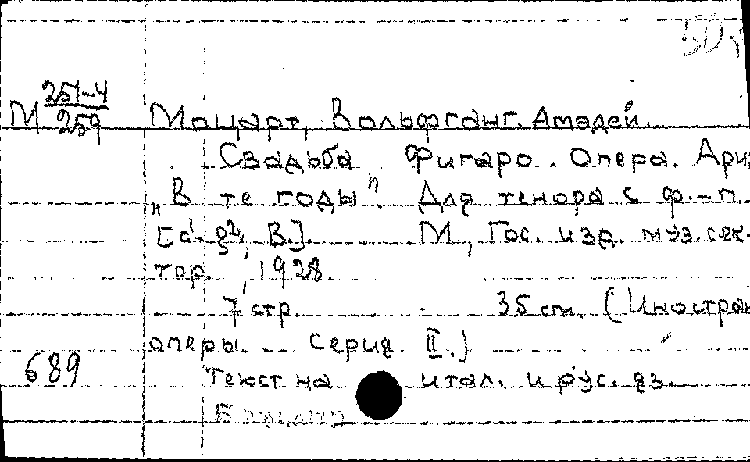 М 251-4/259 Моцарт, Вольфганг Амадей.
Свадьба Фигаро. Опера. Ариз
„В те годы". Для тенора с ф.-п.
М., Гос. изд. муз. сек-
тор, 1928
7 стр. 35 cm. (Иностран
оперы. Серия II.)
689 Текст на итал. и рус. яз.